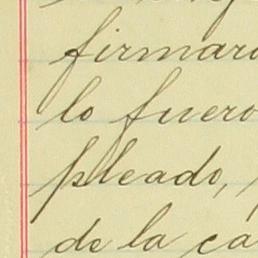 firmaro
lo fuero
pleado,
de la ca